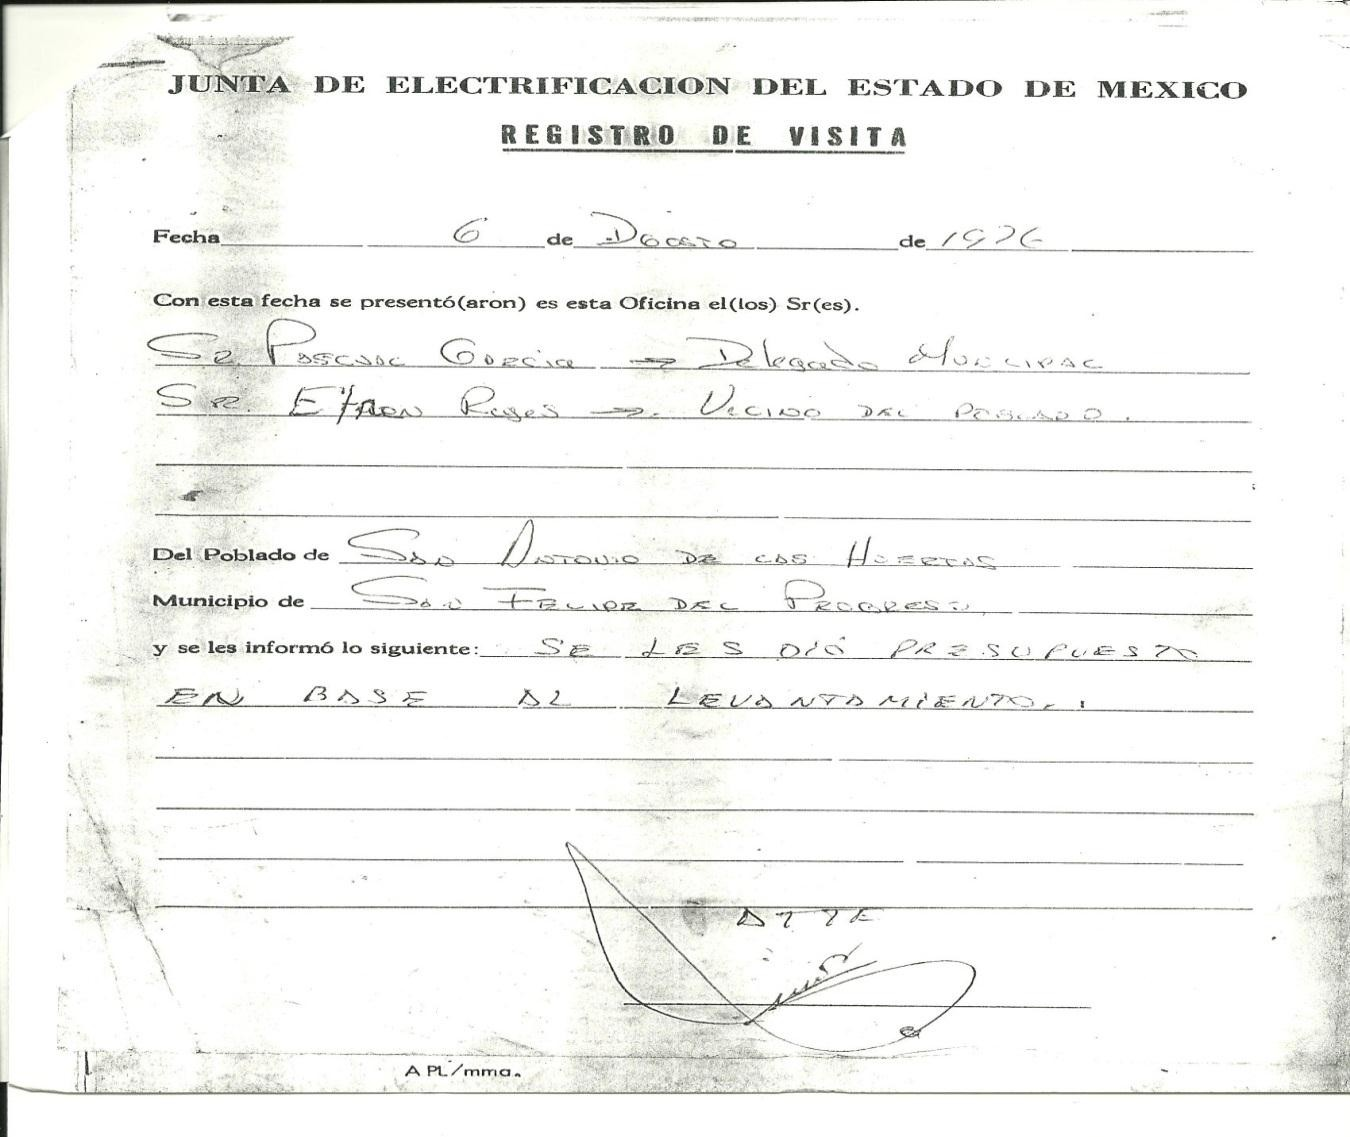 JUNTA DE ELECTRIFICACION DEL ESTADO DE MEXICO
REGISTRO DE VISITA
Fecha 6 de Agosto de 1976
Con esta fecha se presentó(aron) es esta Oficina el(los) Sr(es).
Sr. Pascual Garcia → Delegado Municipal
Sr. Efren Reyes → Vecino del poblado.
Del Poblado de San Antonio de las Huertas
Municipio de San Felipe del Progreso,
y se les informó lo siguiente: SE LES DIÓ PRESUPUESTO
EN BASE AL LEVANTAMIENTO.
ATTE
APL/mma.